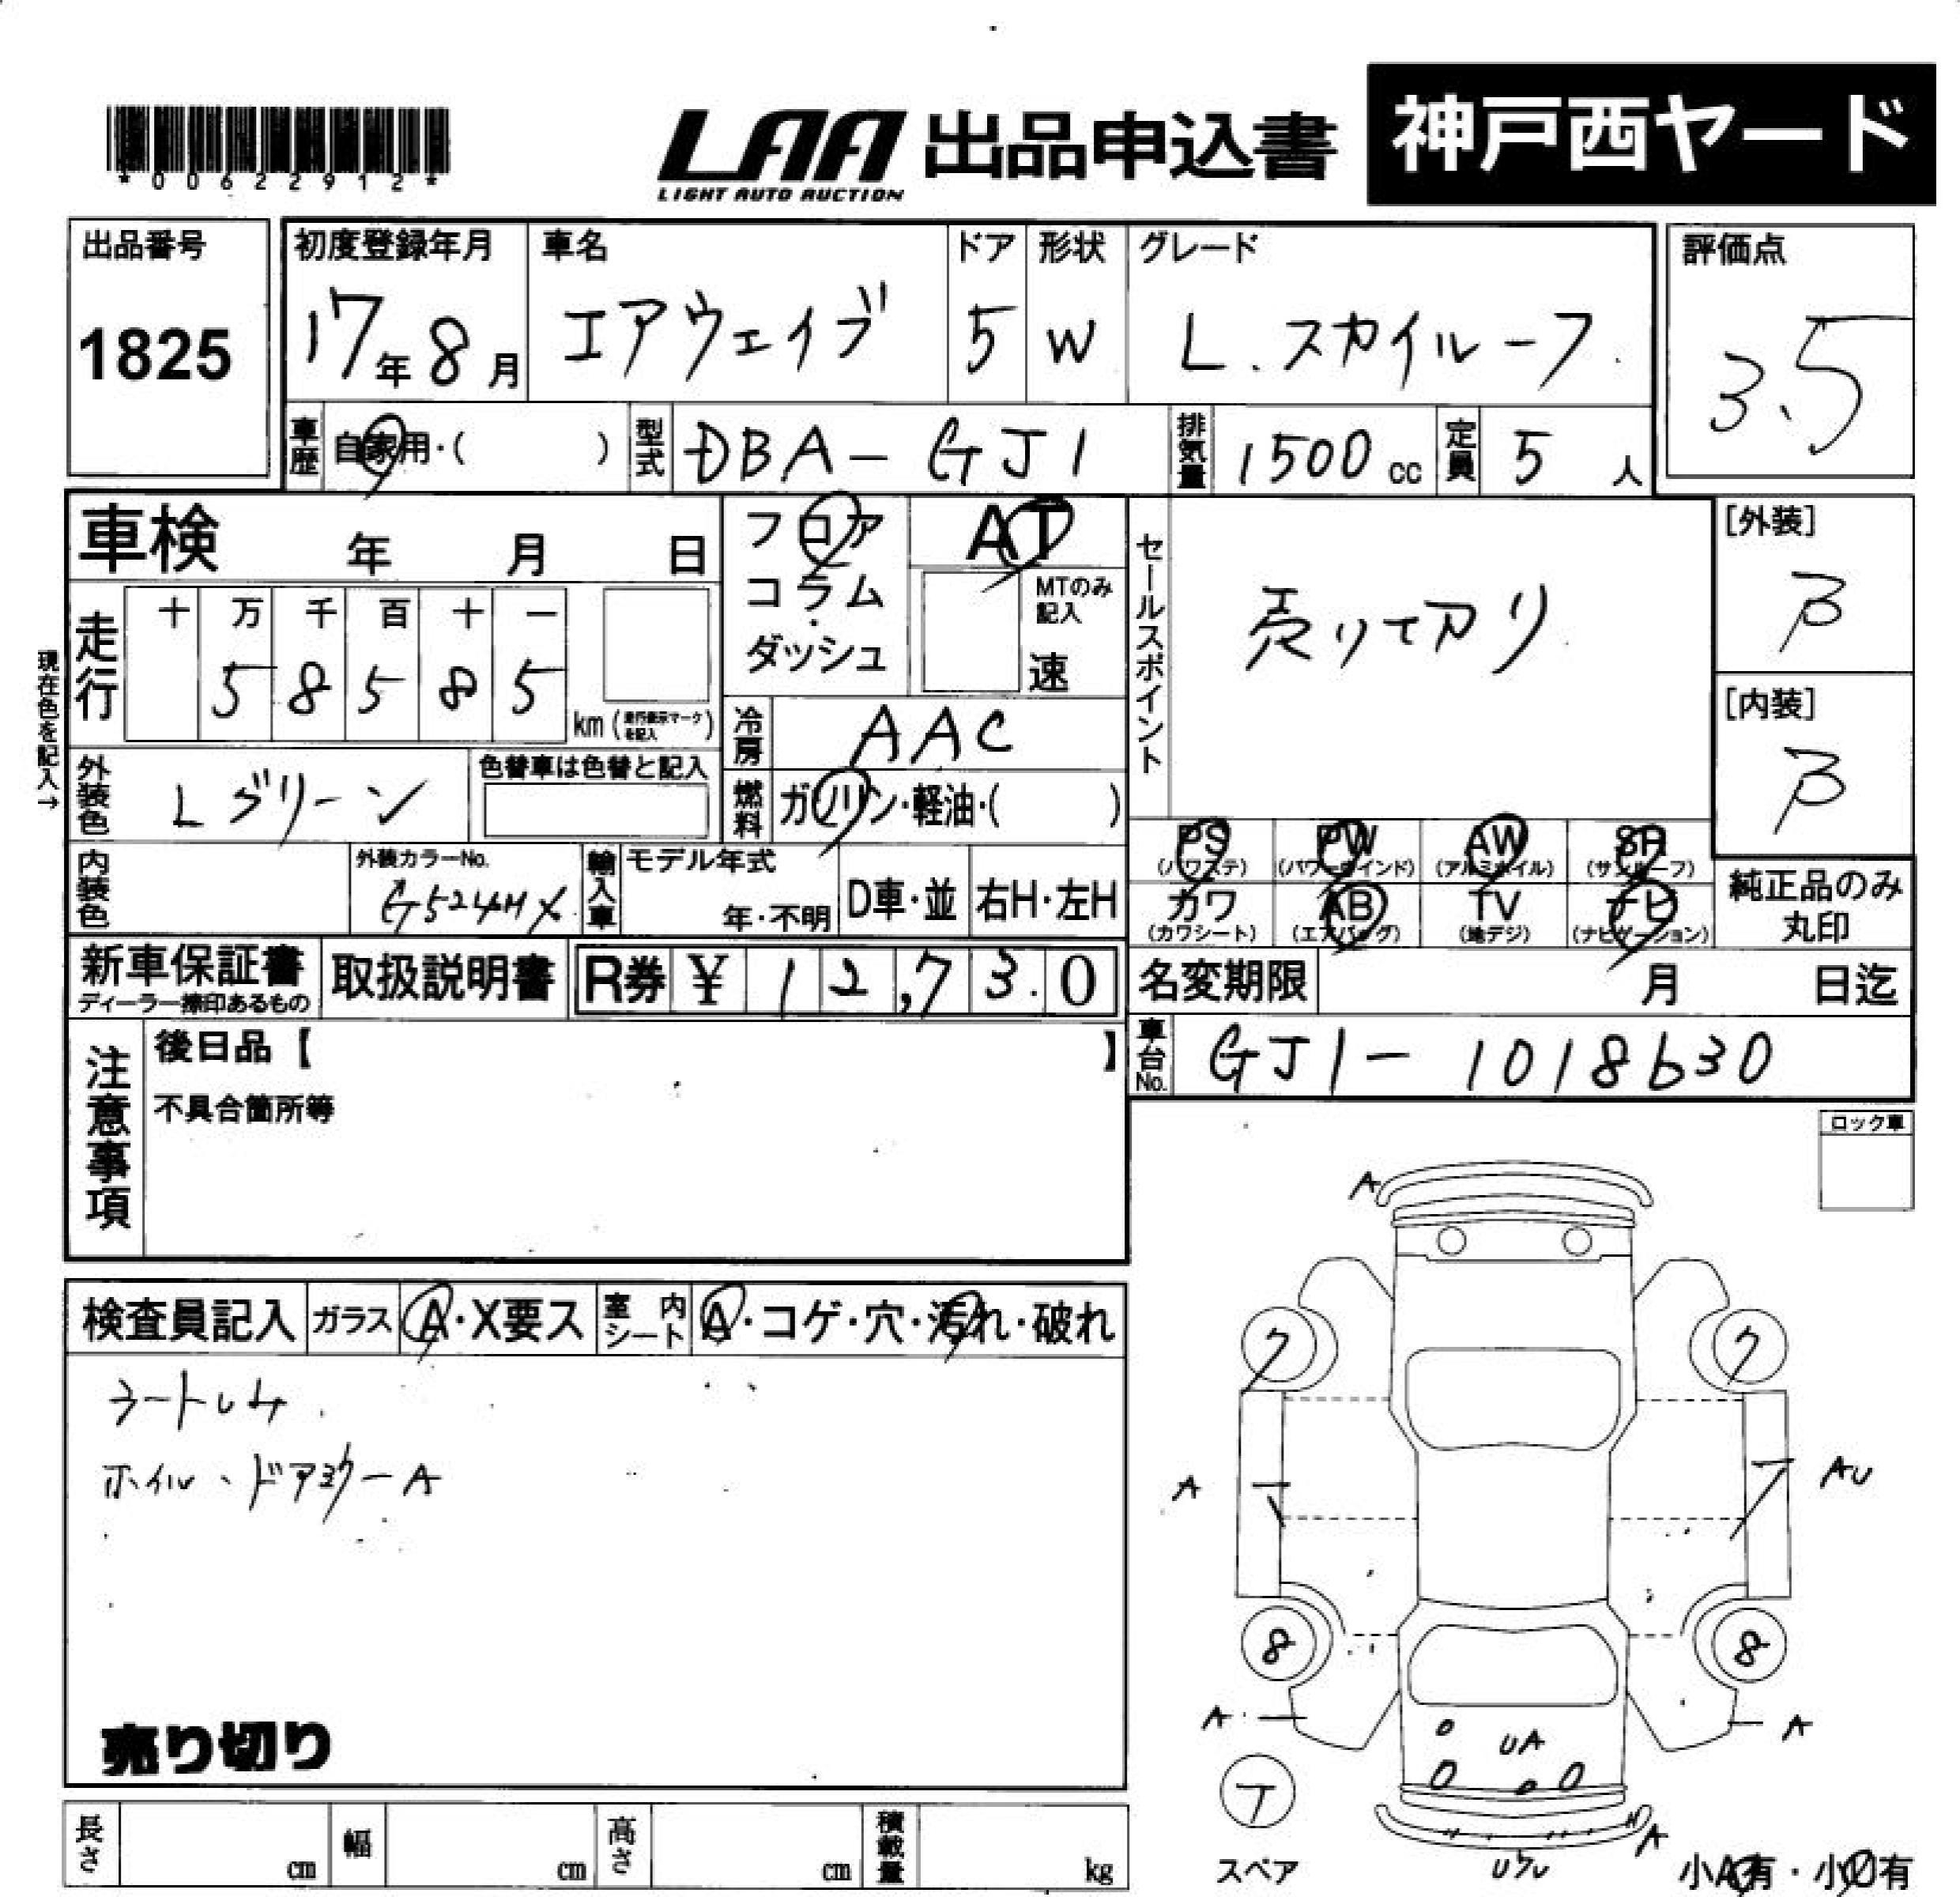 *00622912*
LAA 出品申込書 神戸西ヤード
LIGHT AUTO AUCTION
出品番号 初度登録年月 車名 ドア 形状 グレード 評価点
1825 17年8月 エアウェイブ 5 W L.スカイルーフ 3.5
車歴 自家用・( ) 型式 DBA-GJ1 排気量 1500cc 定員 5人
車検 年 月 日 フロア AT セールスポイント [外装]
コラム MTのみ記入
ダッシュ 速
売り切り
B
現在色を記入→
走行 十 万 千 百 十 一
5 8 5 8 5 km(走行表示マークを記入)
冷房 AAC
[内装]
B
外装色 Lグリーン 色替車は色替と記入 燃料 ガソリン・軽油・( )
PS PW AW SR
(パワステ) (パワーウインド) (アルミホイル) (サンルーフ)
内装色 外装カラーNo. 輸入車 モデル年式 年・不明 D車・並 右H・左H
カワ AB TV ナビ 純正品のみ丸印
(カワシート) (エアバッグ) (地デジ) (ナビゲーション)
新車保証書 取扱説明書 R券 ¥ 12,730 名変期限 月 日迄
ディーラー捺印あるもの
注意事項 後日品【 】 車台No. GJ1-1018630
不具合箇所等
ロック車
検査員記入 ガラス A・X要ス 室内シート A・コゲ・穴・汚れ・破れ
ホイル、ドアミラーA
売り切り
A
ク ク
A AU
8 8
A A
UA
T
A
スペア
小A有・小U有
長さ cm 幅 cm 高さ cm 積載量 kg